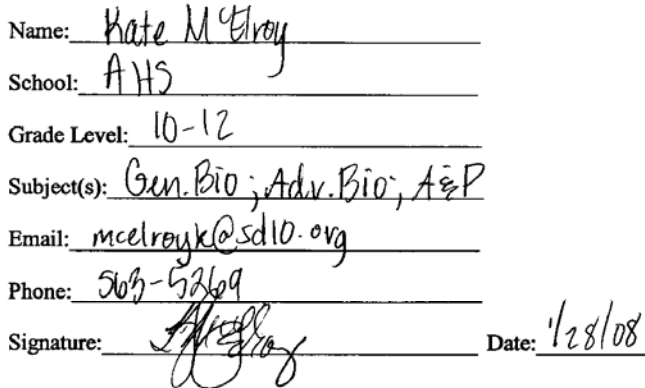 Name: Kate McElroy
School: AHS
Grade Level: 10-12
Subject(s): Gen. Bio; Adv. Bio; A&P
Email: mcelroyk@sd10.org
Phone: 563-5269
Signature: Date: 1/28/08